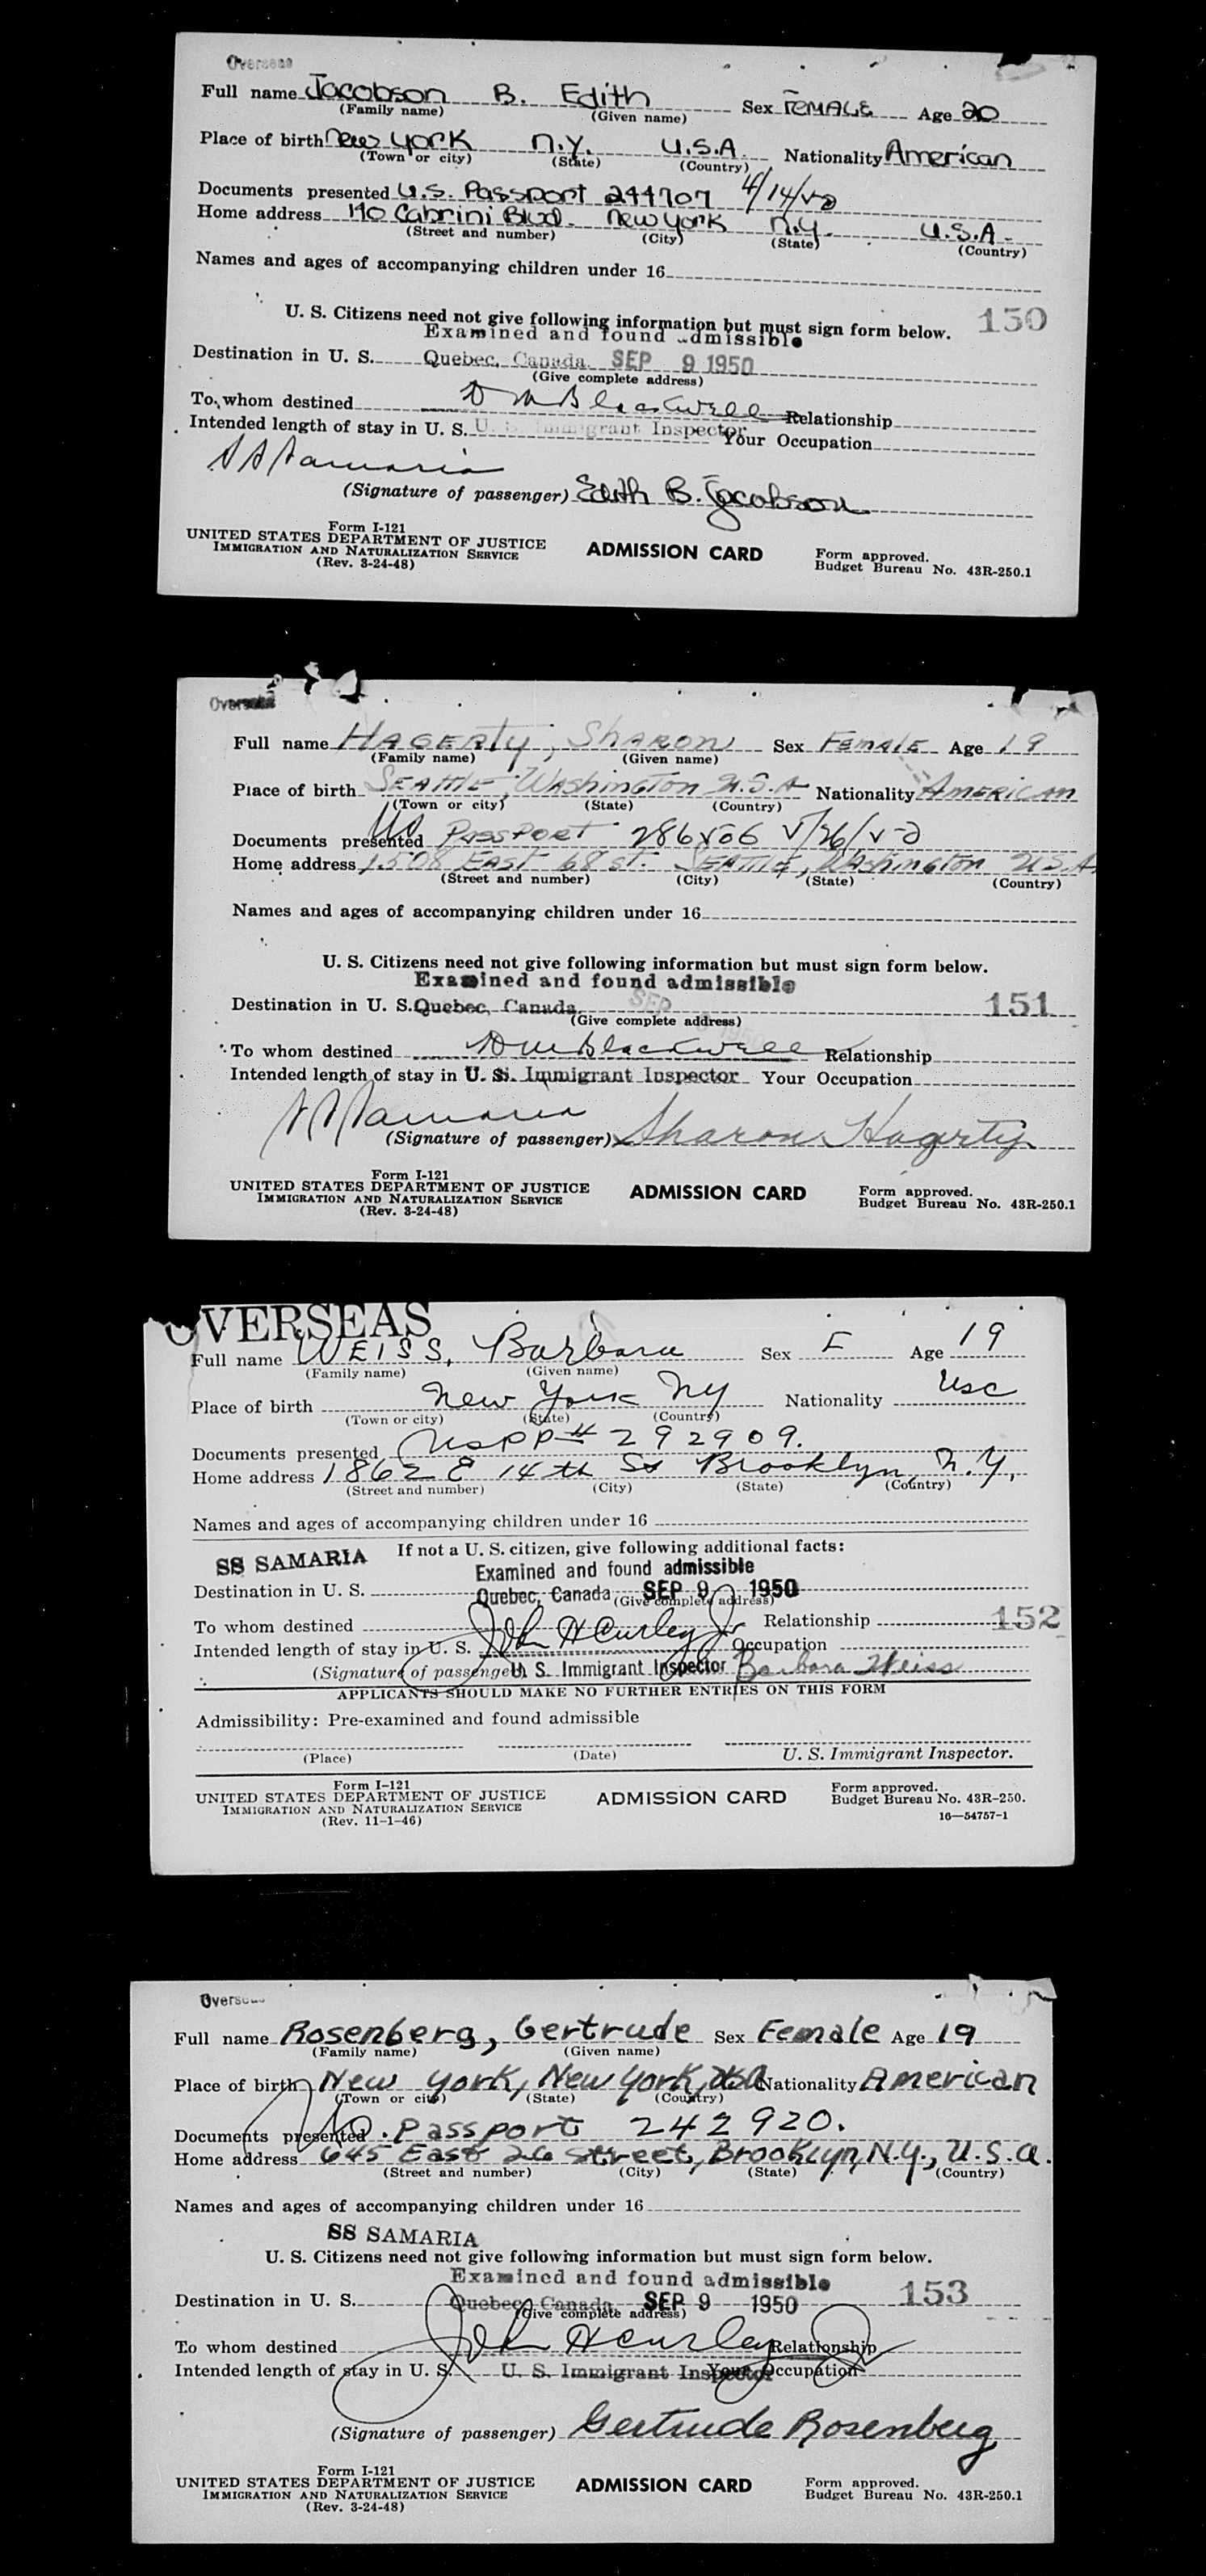 Overseas
Full name Jacobson B. Edith Sex FEMALE Age 20
(Family name) (Given name)
Place of birth New York N.Y. U.S.A. Nationality American
(Town or city) (State) (Country)
Documents presented U.S. Passport 244707 4/14/50
Home address 110 Cabrini Blvd. New York N.Y. U.S.A.
(Street and number) (City) (State) (Country)
Names and ages of accompanying children under 16
U. S. Citizens need not give following information but must sign form below. 150
Examined and found admissible
Destination in U. S. Quebec, Canada SEP 9 1950
(Give complete address)
To whom destined D M Blackwell Relationship
Intended length of stay in U. S. U. S. Immigrant Inspector Your Occupation
SS Samaria
(Signature of passenger) Edith B. Jacobson
Form I-121
UNITED STATES DEPARTMENT OF JUSTICE ADMISSION CARD Form approved.
IMMIGRATION AND NATURALIZATION SERVICE Budget Bureau No. 43R-250.1
(Rev. 3-24-48)
Overseas
Full name HAGERTY, SHARON Sex FEMALE Age 19
(Family name) (Given name)
Place of birth SEATTLE, WASHINGTON U.S.A Nationality AMERICAN
(Town or city) (State) (Country)
Documents presented US PASSPORT 286506 5/26/50
Home address 1508 EAST 68 st. SEATTLE, WASHINGTON U.S.A.
(Street and number) (City) (State) (Country)
Names and ages of accompanying children under 16
U. S. Citizens need not give following information but must sign form below.
Examined and found admissible
Destination in U. S. Quebec, Canada SEP 9 1950 151
(Give complete address)
To whom destined D M Blackwell Relationship
Intended length of stay in U. S. U. S. Immigrant Inspector Your Occupation
SS Samaria
(Signature of passenger) Sharon Hagerty
Form I-121
UNITED STATES DEPARTMENT OF JUSTICE ADMISSION CARD Form approved.
IMMIGRATION AND NATURALIZATION SERVICE Budget Bureau No. 43R-250.1
(Rev. 3-24-48)
OVERSEAS
Full name WEISS, Barbara Sex F Age 19
(Family name) (Given name)
Place of birth New York NY Nationality USC
(Town or city) (State) (Country)
Documents presented USPP# 292909.
Home address 1862 E 14th St Brooklyn, N.Y.
(Street and number) (City) (State) (Country)
Names and ages of accompanying children under 16
SS SAMARIA If not a U. S. citizen, give following additional facts:
Examined and found admissible
Destination in U. S. Quebec, Canada SEP 9 1950
(Give complete address)
To whom destined John H Curley Jr Relationship 152
Intended length of stay in U. S. Occupation
(Signature of passenger) U. S. Immigrant Inspector Barbara Weiss
APPLICANTS SHOULD MAKE NO FURTHER ENTRIES ON THIS FORM
Admissibility: Pre-examined and found admissible
(Place) (Date) U. S. Immigrant Inspector.
Form I-121
UNITED STATES DEPARTMENT OF JUSTICE ADMISSION CARD Form approved.
IMMIGRATION AND NATURALIZATION SERVICE Budget Bureau No. 43R-250.
(Rev. 11-1-46) 16—54757-1
Overseas
Full name Rosenberg, Gertrude Sex Female Age 19
(Family name) (Given name)
Place of birth New York, New York, USA Nationality American
(Town or city) (State) (Country)
Documents presented US. Passport 242920.
Home address 645 East 26 Street, Brooklyn, N.Y., U.S.A.
(Street and number) (City) (State) (Country)
Names and ages of accompanying children under 16
SS SAMARIA
U. S. Citizens need not give following information but must sign form below.
Examined and found admissible
Destination in U. S. Quebec, Canada SEP 9 1950 153
(Give complete address)
To whom destined John H Curley Jr Relationship
Intended length of stay in U. S. U. S. Immigrant Inspector Your Occupation
(Signature of passenger) Gertrude Rosenberg
Form I-121
UNITED STATES DEPARTMENT OF JUSTICE ADMISSION CARD Form approved.
IMMIGRATION AND NATURALIZATION SERVICE Budget Bureau No. 43R-250.1
(Rev. 3-24-48)